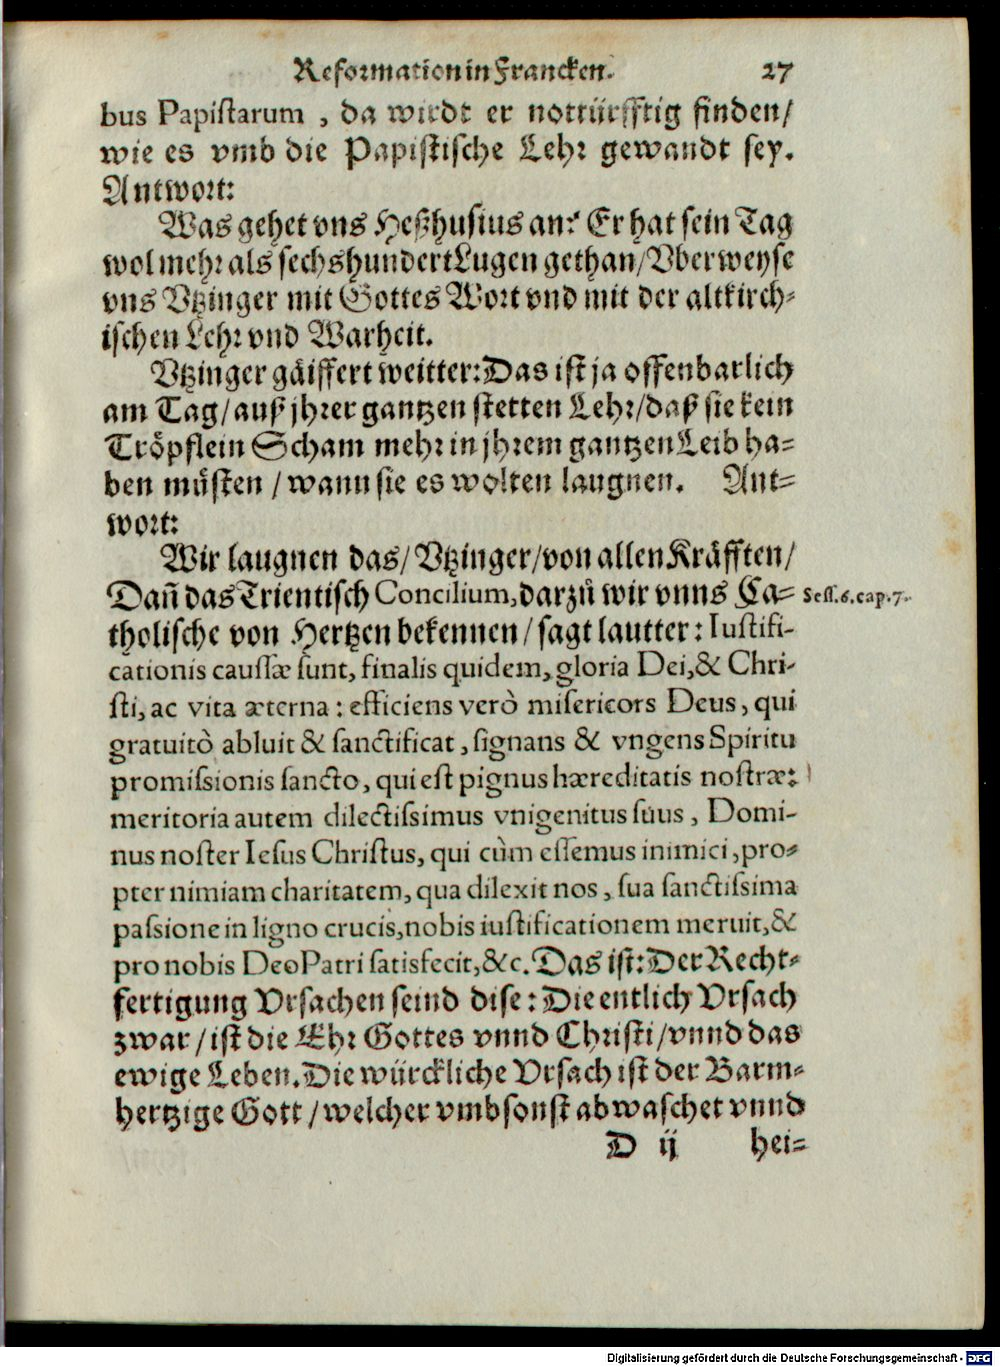 Reformation in Francken. 27
bus Papistarum, da wirdt er nottürfftig finden/
wie es vmb die Papistische Lehr gewandt sey.
Antwort:
Was gehet vns Heßhusius an? Er hat sein Tag
wol mehr als sechshundert Lugen gethan/ Vberweyse
vns Vtzinger mit Gottes Wort vnd mit der altkirch-
ischen Lehr vnd Warheit.
Vtzinger gäiffert weitter: Das ist ja offenbarlich
am Tag/ auß jhrer gantzen stetten Lehr/ daß sie kein
Tröpflein Scham mehr in jhrem gantzen Leib ha-
ben müsten / wann sie es wolten laugnen. Ant-
wort:
Wir laugnen das/ Vtzinger/ von allen Kräfften/
Dañ das Trientisch Concilium, darzů wir vnns Ca- Sess.6.cap.7.
tholische von Hertzen bekennen/ sagt lautter: Iustifi-
cationis caussæ sunt, finalis quidem, gloria Dei, & Chri-
sti, ac vita æterna: efficiens verò misericors Deus, qui
gratuitò abluit & sanctificat, signans & vngens Spiritu
promissionis sancto, qui est pignus hæreditatis nostræ:
meritoria autem dilectissimus vnigenitus suus, Domi-
nus noster Iesus Christus, qui cùm essemus inimici, pro-
pter nimiam charitatem, qua dilexit nos, sua sanctissima
passione in ligno crucis, nobis iustificationem meruit, &
pro nobis Deo Patri satisfecit, &c. Das ist: Der Recht-
fertigung Vrsachen seind dise: Die entlich Vrsach
zwar/ ist die Ehr Gottes vnnd Christi/ vnnd das
ewige Leben. Die würckliche Vrsach ist der Barm-
hertzige Gott/ welcher vmbsonst abwaschet vnnd
D ij hei-
Digitalisierung gefördert durch die Deutsche Forschungsgemeinschaft - DFG